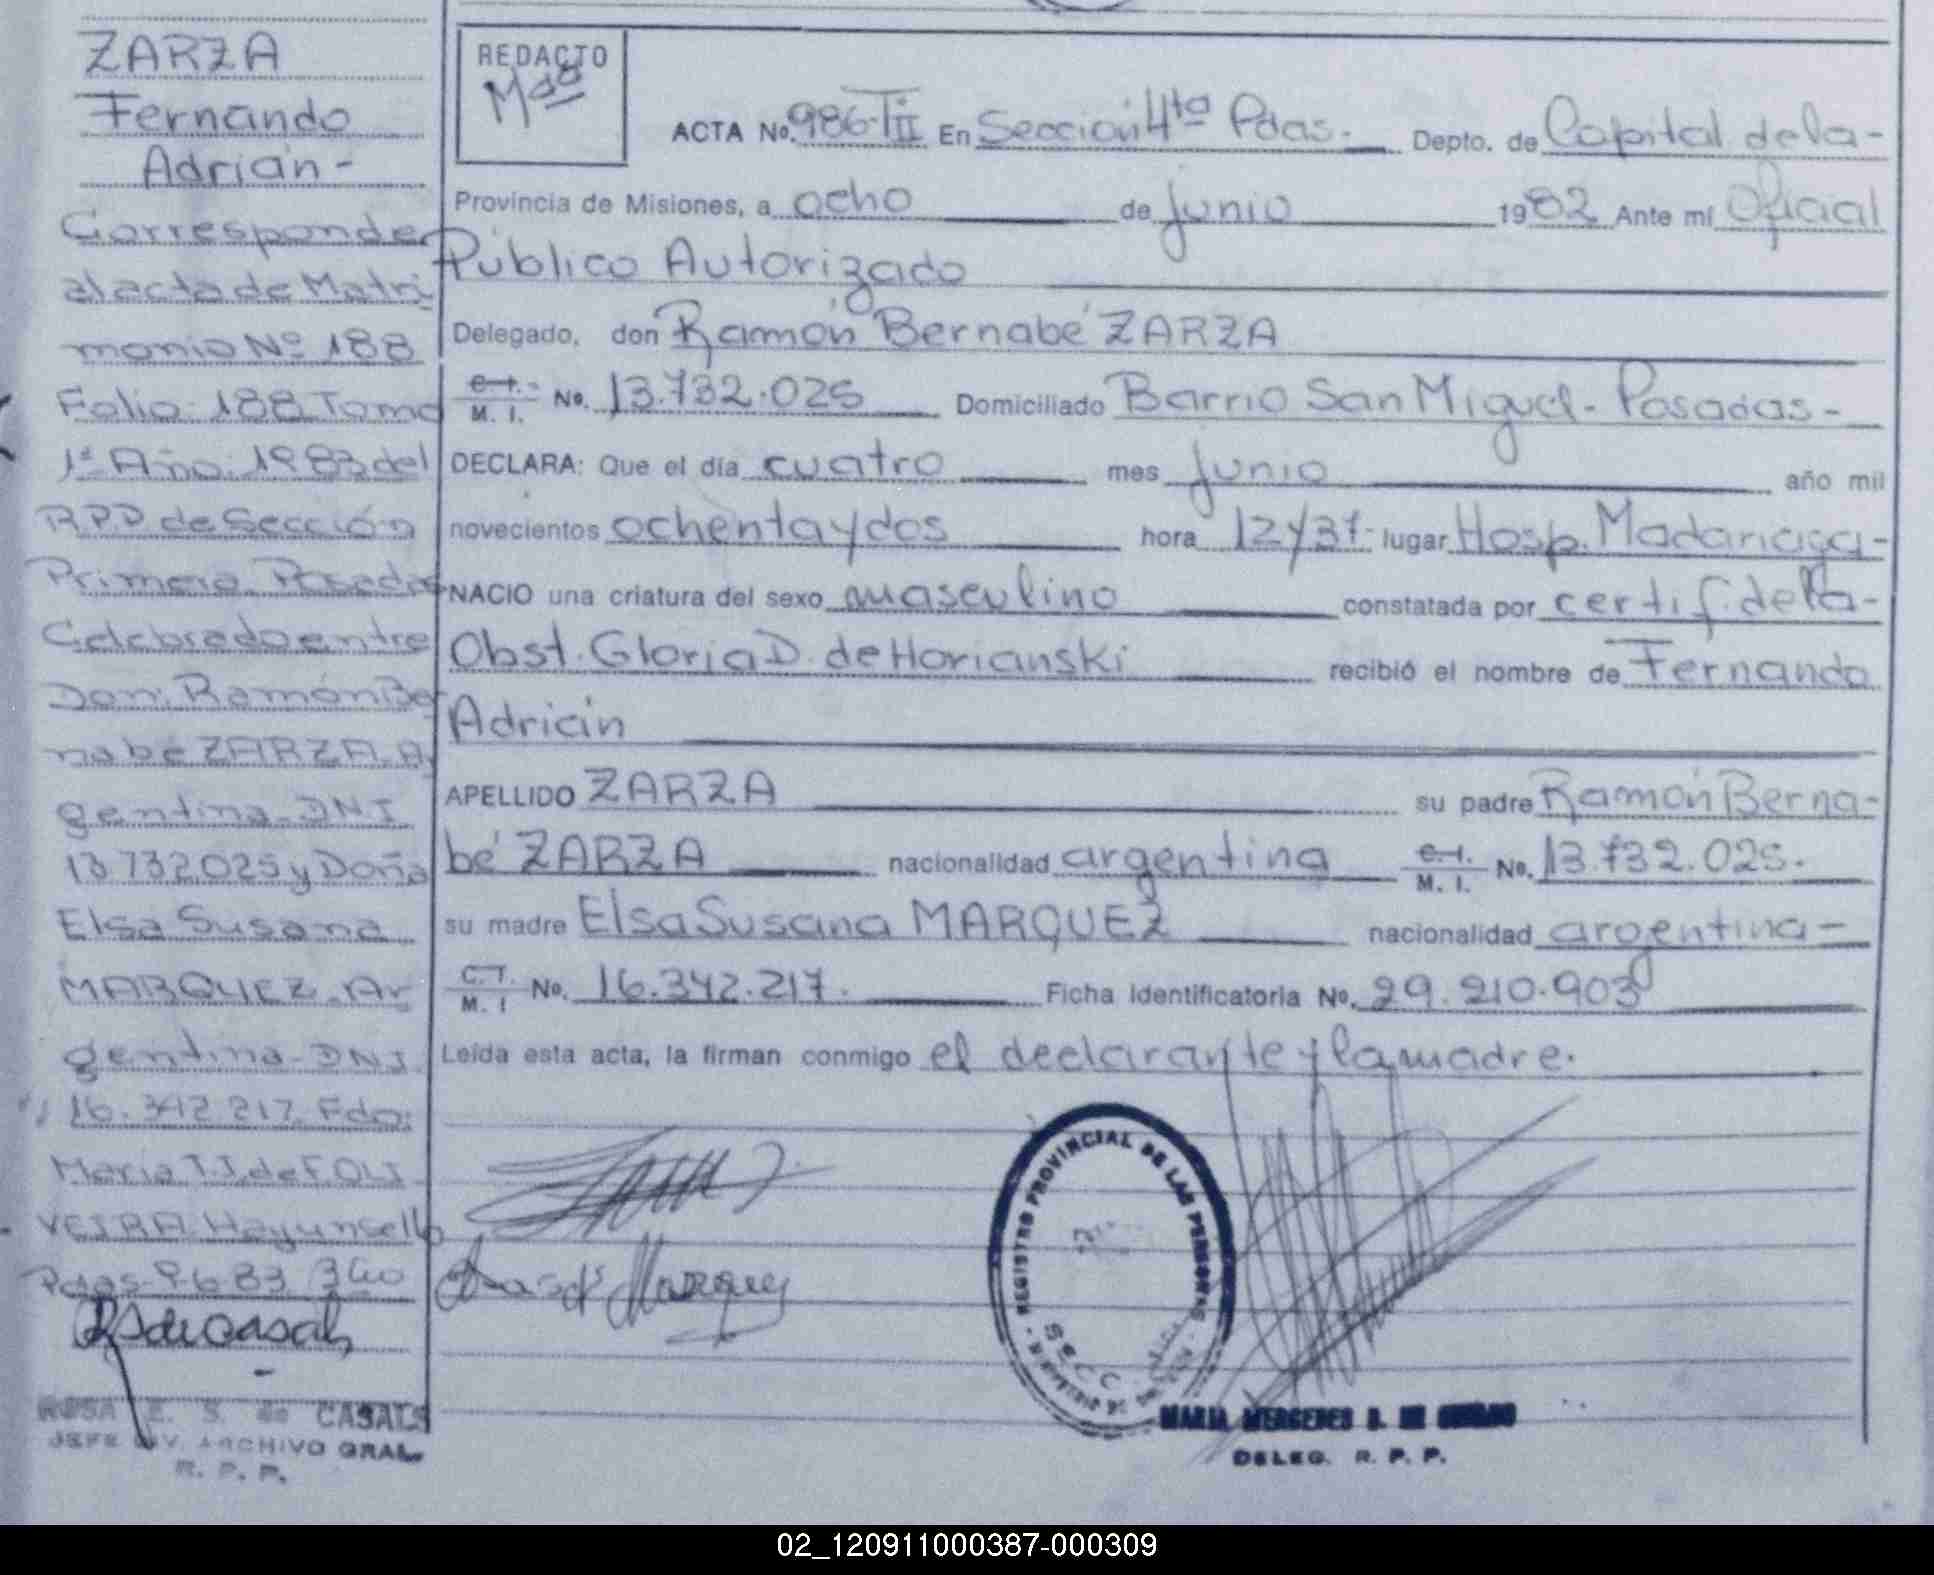 ZARZA
Fernando
Adrián -
Corresponde
al acta de Matri
monio Nº 188
Folio 188 Tomo
1º Año 1983 del
RPP de Sección
Primera Posadas
Celebrado entre
Don: Ramón Be
nabé ZARZA Ar
gentina DNI
13 732 025 y Doña
Elsa Susana
MARQUEZ Ar
gentina DNI
16.342 217 Fdo:
Maria T.J. de F. OLI
VEIRA Hay un sello
Pdas 9-6-83
ROSA E. S. de CASALS
JEFE DIV. ARCHIVO GRAL.
R. P. P.
REDACTO
ACTA No. 986-TII En Sección 4ta Pdas.- Depto. de Capital de la-
Provincia de Misiones, a ocho de junio 1982 Ante mí Oficial
Público Autorizado
Delegado, don Ramón Bernabé ZARZA
C.I.- M. I. No. 13.732.025 Domiciliado Barrio San Miguel- Posadas-
DECLARA: Que el día cuatro mes junio año mil
novecientos ochenta y dos hora 12 y 37- lugar Hosp. Madariaga-
NACIO una criatura del sexo masculino constatada por certif. de la-
Obst. Gloria D. de Horianski recibió el nombre de Fernando
Adrián
APELLIDO ZARZA su padre Ramón Berna-
bé ZARZA nacionalidad argentina C.I. M. I. No. 13.732.025.
su madre Elsa Susana MARQUEZ nacionalidad argentina-
C.I. M. I No. 16.342.217. Ficha Identificatoria No. 29.210.903
Leída esta acta, la firman conmigo el declarante y la madre.
Marquez
REGISTRO PROVINCIAL DE LAS PERSONAS
SECC
MARIA MERCEDES
DELEG. R. P. P.
02_120911000387-000309